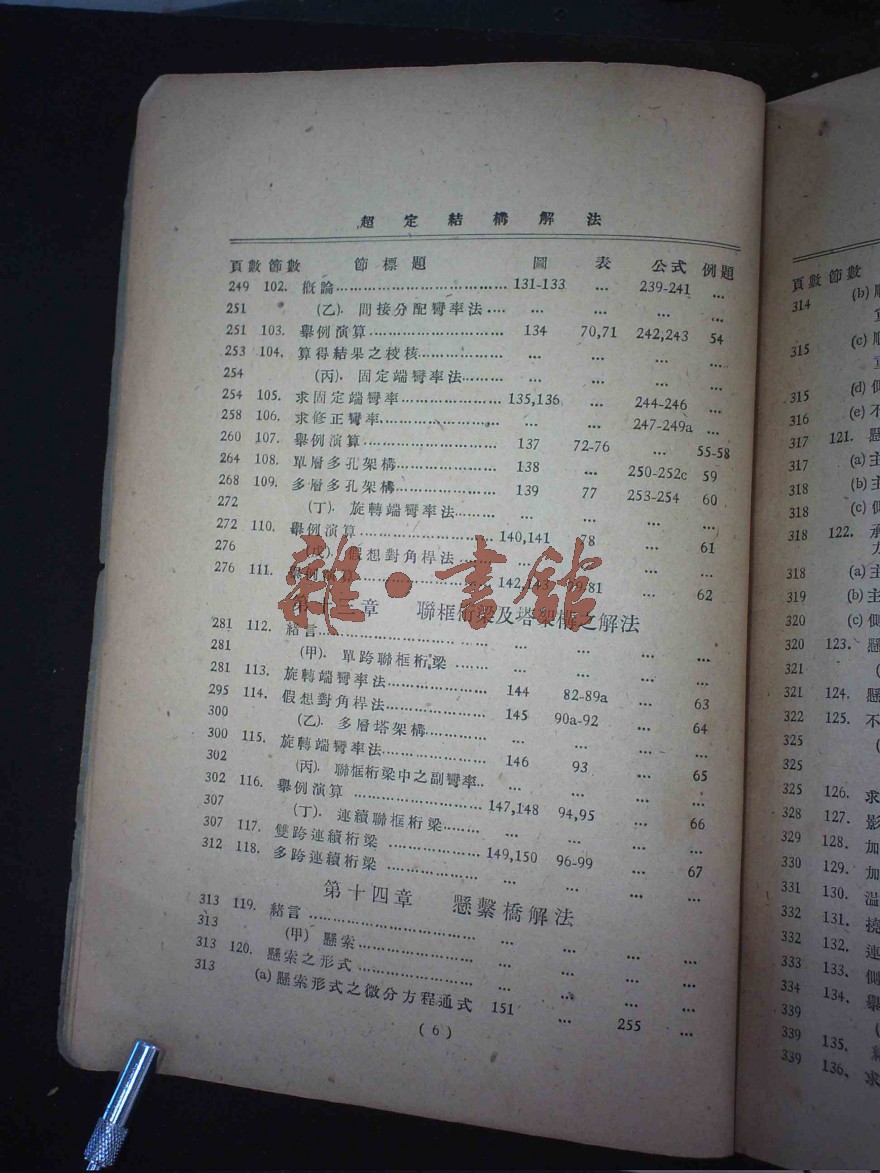 超定結構解法
頁數 節數 節標題 圖 表 公式 例題
249 102. 概論 ... 131-133 ... 239-241 ...
251 (乙). 間接分配彎率法 ... ... ... ... ...
251 103. 舉例演算 ... 134 70,71 242,243 54
253 104. 算得結果之校核 ... ... ... ... ...
254 (丙). 固定端彎率法 ... ... ... ... ...
254 105. 求固定端彎率 ... 135,136 ... 244-246 ...
258 106. 求修正彎率 ... ... ... 247-249a ...
260 107. 舉例演算 ... 137 72-76 ... 55-58
264 108. 單層多孔架構 ... 138 ... 250-252c 59
268 109. 多層多孔架構 ... 139 77 253-254 60
272 (丁). 旋轉端彎率法 ... ... ... ... ...
272 110. 舉例演算 ... 140,141 78 ... 61
276 (戊). 假想對角桿法 ...
276 111. 舉例演算 ... 142,143 79-81 ... 62
第十三章 聯框桁梁及塔架構之解法
281 112. 緒言 ... ... ... ... ...
281 (甲). 單跨聯框桁梁 ... ... ... ... ...
281 113. 旋轉端彎率法 ... 144 82-89a ... 63
295 114. 假想對角桿法 ... 145 90a-92 ... 64
300 (乙). 多層塔架構 ... ... ... ... ...
300 115. 旋轉端彎率法 ... 146 93 ... 65
302 (丙). 聯框桁梁中之副彎率 ... ... ... ... ...
302 116. 舉例演算 ... 147,148 94,95 ... 66
307 (丁). 連續聯框桁梁 ... ... ... ... ...
307 117. 雙跨連續桁梁 ... 149,150 96-99 ... 67
312 118. 多跨連續桁梁 ... ... ... ... ...
第十四章 懸繫橋解法
313 119. 緒言 ... ... ... ... ...
313 (甲) 懸索 ... ... ... ... ...
313 120. 懸索之形式 ... ... ... ... ...
313 (a) 懸索形式之微分方程通式 151 ... 255 ...
(6)
雜·書館
頁數 節數
314 (b)
315 (c)
315 (d)
316 (e) 不
317 121. 懸
317 (a) 主
318 (b) 主
318 (c) 側
318 122. 承
力
318 (a) 主
319 (b) 主
320 (c) 側
320 123. 懸
321 (
321 124. 懸
322 125. 不
325 (
325
325 126. 求
328 127. 影
329 128. 加
330 129. 加
331 130. 溫
332 131. 撓
332 132. 連
333 133. 側
334 134. 舉
339 (
339 135.
339 136. 求